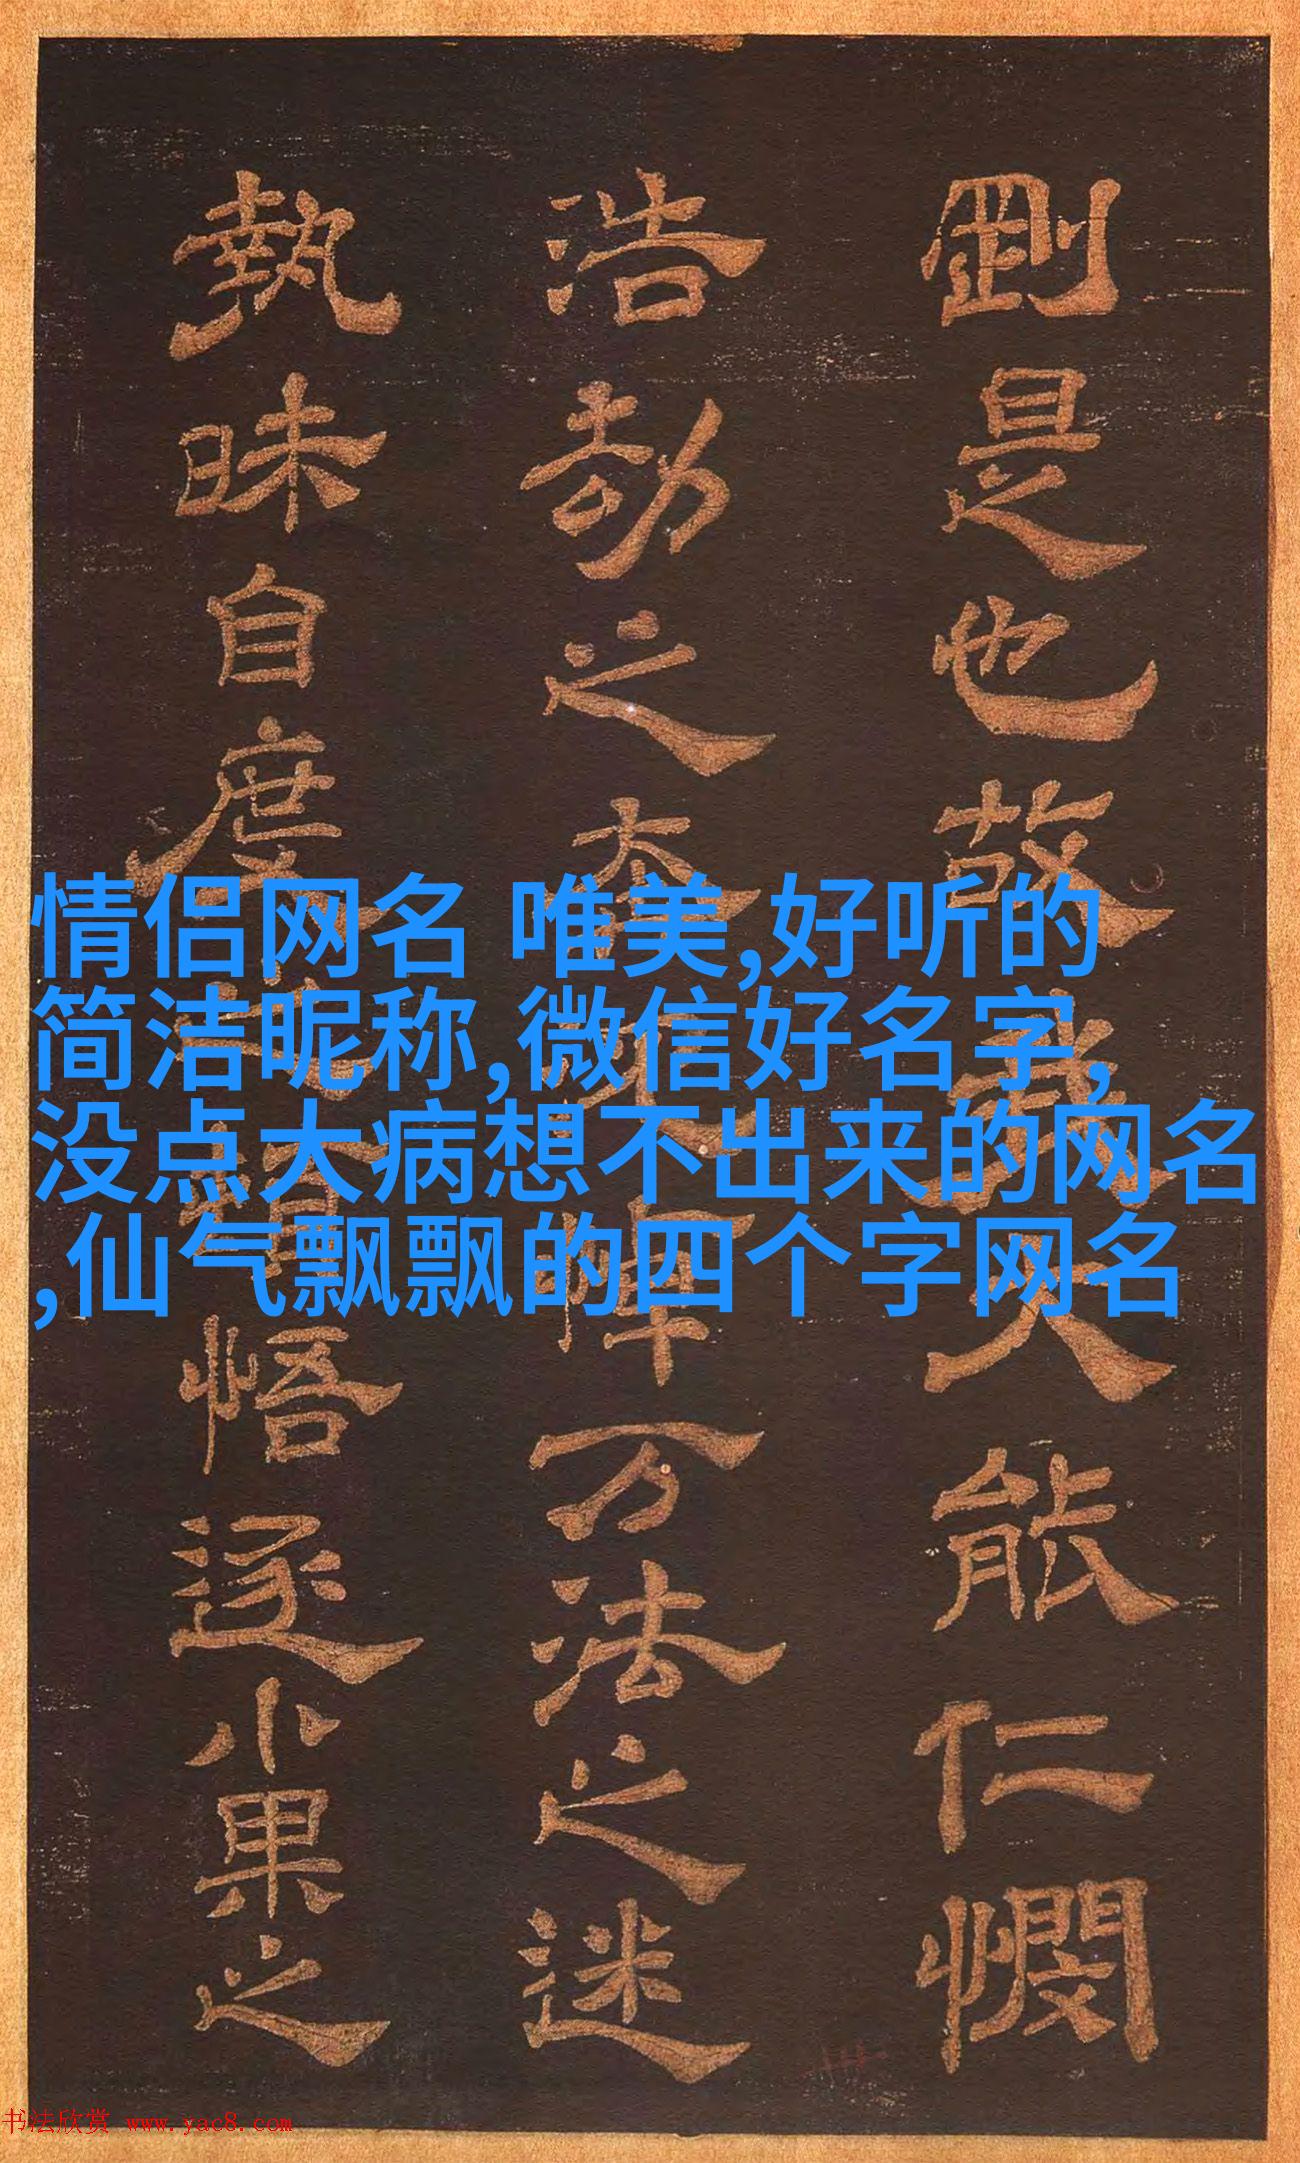 剛是也我大能仁憫
浩劫之万法之迷
執昧自度悟小果之
情侣网名 唯美,好听的
简洁昵称,微信好名字,
没点大病想不出来的网名
,仙气飘飘的四个字网名
书法欣赏 www.yac8.com